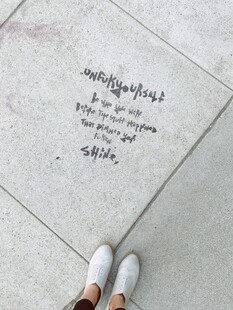 UNFUKYOURSELF
BE WHO YOU WERE
BEFORE THE STUFF HAPPENED
THAT DIMMED YOUR
FUKEN
SHINE,